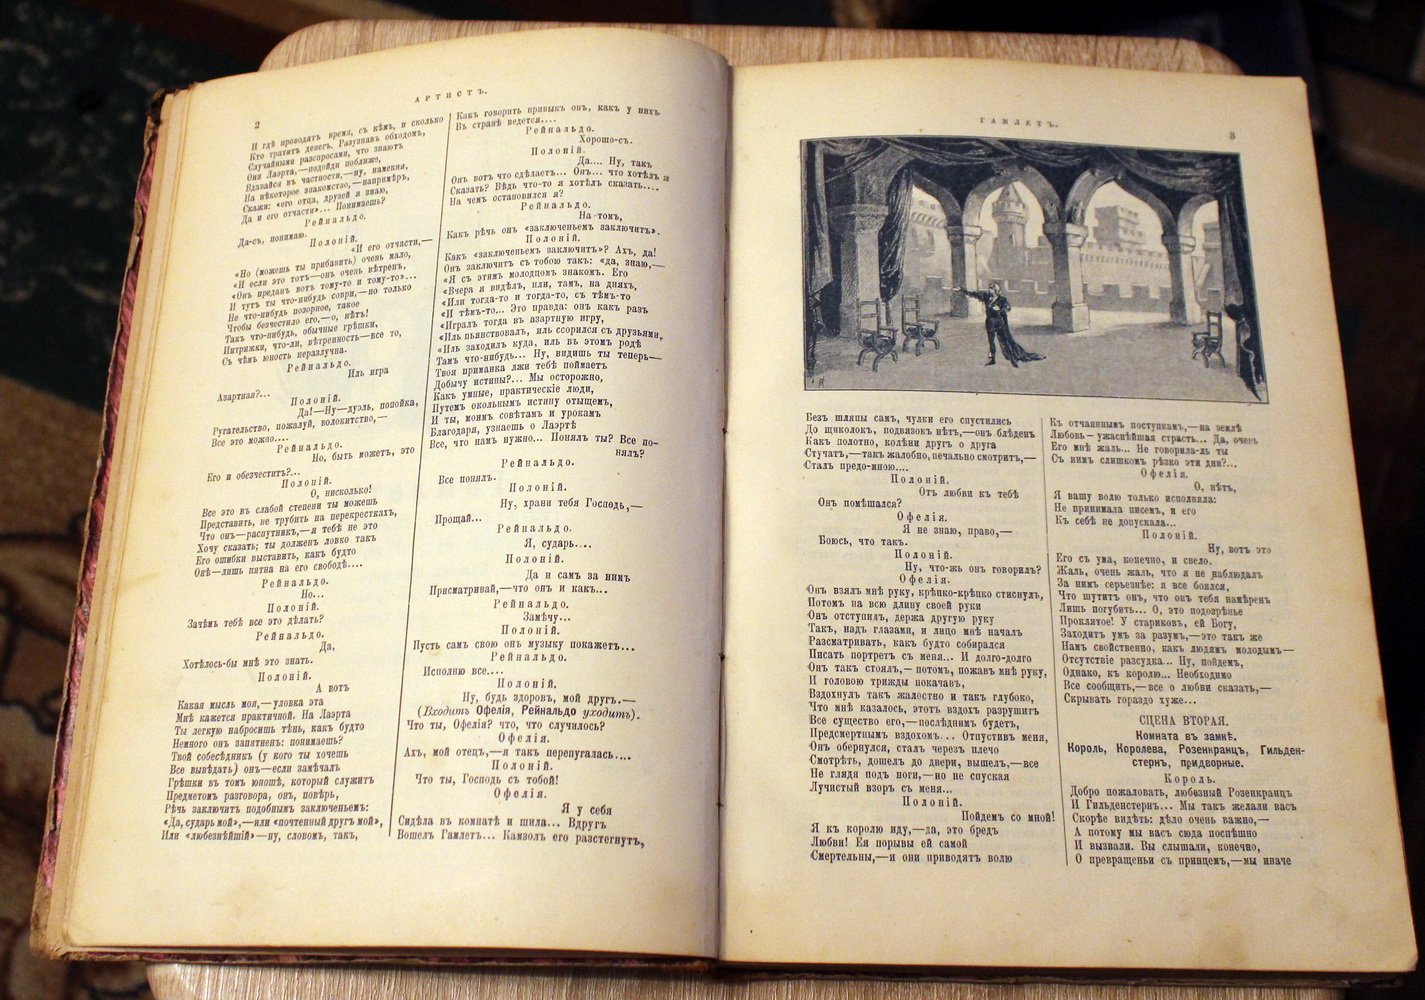 2
АРТИСТЪ.
И гдѣ проводятъ время, съ кѣмъ, и сколько
Кто тратитъ денегъ. Разузнавъ обходомъ,
Случайными распросами, что знаютъ
Они Лаэрта,—подойди поближе,
Вдавайся въ частности,—ну, намекни
На нѣкоторое знакомство,—напримѣръ,
Скажи: «его отца, друзей я знаю,
Да и его отчасти»... Понимаешь?
Рейнальдо.
Да-съ, понимаю.
Полоній.
«И его отчасти,—
«Но (можешь ты прибавить) очень мало,
«И если это тотъ—онъ очень вѣтренъ,
«Онъ преданъ вотъ тому-то и тому-то»...
И тутъ ты что-нибудь соври,—но только
Не что-нибудь позорное, такое
Чтобы безчестило его,—о, нѣтъ!
Такъ что-нибудь, обычные грѣшки,
Интрижки, что-ли, вѣтренность—все то,
Съ чѣмъ юность неразлучна.
Рейнальдо.
Иль игра
Азартная?...
Полоній.
Да!—Ну—дуэль, попойка,
Ругательство, пожалуй, волокитство,—
Все это можно....
Рейнальдо.
Но, быть можетъ, это
Его и обезчеститъ?...
Полоній.
О, нисколько!
Все это въ слабой степени ты можешь
Представить, не трубить на перекресткахъ,
Что онъ—распутникъ,—я тебѣ не это
Хочу сказать; ты долженъ ловко такъ
Его ошибки выставить, какъ будто
Онѣ—лишь пятна на его свободѣ....
Рейнальдо.
Но...
Полоній.
Зачѣмъ тебѣ все это дѣлать?
Рейнальдо.
Да,
Хотѣлось-бы мнѣ это знать.
Полоній.
А вотъ
Какая мысль моя,—уловка эта
Мнѣ кажется практичной. На Лаэрта
Ты легкую набросишь тѣнь, какъ будто
Немного онъ запятненъ: понимаешь?
Твой собесѣдникъ (у кого ты хочешь
Все вывѣдать) онъ—если замѣчалъ
Грѣшки въ томъ юношѣ, который служитъ
Предметомъ разговора, онъ, повѣрь,
Рѣчь заключитъ подобнымъ заключеньемъ:
«Да, сударь мой»,—или «почтенный другъ мой»,
Или «любезнѣйшій»—ну, словомъ, такъ,
Какъ говорить привыкъ онъ, какъ у нихъ
Въ странѣ ведется....
Рейнальдо.
Хорошо-съ.
Полоній.
Да.... Ну, такъ
Онъ вотъ что сдѣлаетъ... Онъ... что хотѣлъ я
Сказать? Вѣдь что-то я хотѣлъ сказать....
На чемъ остановился я?
Рейнальдо.
На томъ,
Какъ рѣчь онъ «заключеньемъ заключитъ».
Полоній.
Какъ «заключеньемъ заключитъ»? Ахъ, да!
Онъ заключитъ съ тобою такъ: «да, знаю,—
«Я съ этимъ молодцомъ знакомъ. Его
«Вчера я видѣлъ, или, тамъ, на дняхъ,
«Или тогда-то и тогда-то, съ тѣмъ-то
«И тѣмъ-то... Это правда: онъ какъ разъ
«Игралъ тогда въ азартную игру,
«Иль пьянствовалъ, иль ссорился съ друзьями,
«Иль заходилъ куда, иль въ этомъ родѣ
Тамъ что-нибудь... Ну, видишь ты теперь—
Твоя приманка лжи тебѣ поймаетъ
Добычу истины?... Мы осторожно,
Какъ умные, практическіе люди,
Путемъ окольнымъ истину отыщемъ,
И ты, моимъ совѣтамъ и урокамъ
Благодаря, узнаешь о Лаэртѣ
Все, что намъ нужно... Понялъ ты? Все по-
нялъ?
Рейнальдо.
Все понялъ.
Полоній.
Ну, храни тебя Господь,—
Прощай...
Рейнальдо.
Я, сударь....
Полоній.
Да и самъ за нимъ
Присматривай,—что онъ и какъ...
Рейнальдо.
Замѣчу...
Полоній.
Пусть самъ свою онъ музыку покажетъ...
Рейнальдо.
Исполню все....
Полоній.
Ну, будь здоровъ, мой другъ.—
(Входитъ Офелія, Рейнальдо уходитъ).
Что ты, Офелія? что, что случилось?
Офелія.
Ахъ, мой отецъ,—я такъ перепугалась....
Полоній.
Что ты, Господь съ тобой!
Офелія.
Я у себя
Сидѣла въ комнатѣ и шила... Вдругъ
Вошелъ Гамлетъ... Камзолъ его разстегнутъ,
ГАМЛЕТЪ.
3
Безъ шляпы самъ, чулки его спустились
До щиколокъ, подвязокъ нѣтъ,—онъ блѣденъ
Какъ полотно, колѣни другъ о друга
Стучатъ,—такъ жалобно, печально смотритъ,—
Сталъ предо-мною....
Полоній.
Отъ любви къ тебѣ
Онъ помѣшался?
Офелія.
Я не знаю, право,—
Боюсь, что такъ.
Полоній.
Ну, что-жь онъ говорилъ?
Офелія.
Онъ взялъ мнѣ руку, крѣпко-крѣпко стиснулъ,
Потомъ на всю длину своей руки
Онъ отступилъ, держа другую руку
Такъ, надъ глазами, и лицо мнѣ началъ
Разсматривать, какъ будто собирался
Писать портретъ съ меня... И долго-долго
Онъ такъ стоялъ,— потомъ, пожавъ мнѣ руку,
И головою трижды покачавъ,
Вздохнулъ такъ жалостно и такъ глубоко,
Что мнѣ казалось, этотъ вздохъ разрушитъ
Все существо его,—послѣднимъ будетъ,
Предсмертнымъ вздохомъ... Отпустивъ меня,
Онъ обернулся, сталъ черезъ плечо
Смотрѣть, дошелъ до двери, вышелъ,—все
Не глядя подъ ноги,—но не спуская
Лучистый взоръ съ меня...
Полоній.
Пойдемъ со мной!
Я къ королю иду,—да, это бредъ
Любви! Ея порывы ей самой
Смертельны,—и они приводятъ волю
Къ отчаяннымъ поступкамъ,—на землѣ
Любовь—ужаснѣйшая страсть... Да, очень
Его мнѣ жаль... Не говорила-ль ты
Съ нимъ слишкомъ рѣзко эти дни?...
Офелія.
О, нѣтъ,
Я вашу волю только исполняла:
Не принимала писемъ, и его
Къ себѣ не допускала...
Полоній.
Ну, вотъ это
Его съ ума, конечно, и свело.
Жаль, очень жаль, что я не наблюдалъ
За нимъ серьезнѣе: я все боялся,
Что шутитъ онъ, что онъ тебя намѣренъ
Лишь погубить... О, это подозрѣнье
Проклятое! У стариковъ, ей Богу,
Заходитъ умъ за разумъ,—это такъ же
Намъ свойственно, какъ людямъ молодымъ—
Отсутствіе разсудка... Ну, пойдемъ,
Однако, къ королю... Необходимо
Все сообщить,—все о любви сказать,—
Скрывать гораздо хуже...
СЦЕНА ВТОРАЯ.
Комната в замкѣ.
Король, Королева, Розенкранцъ, Гильден-
стернъ, придворные.
Король.
Добро пожаловать, любезный Розенкранцъ
И Гильденстернъ... Мы такъ желали васъ
Скорѣе видѣть: дѣло очень важно,—
А потому мы васъ сюда поспѣшно
И вызвали. Вы слышали, конечно,
О превращеньи съ принцемъ,—мы иначе